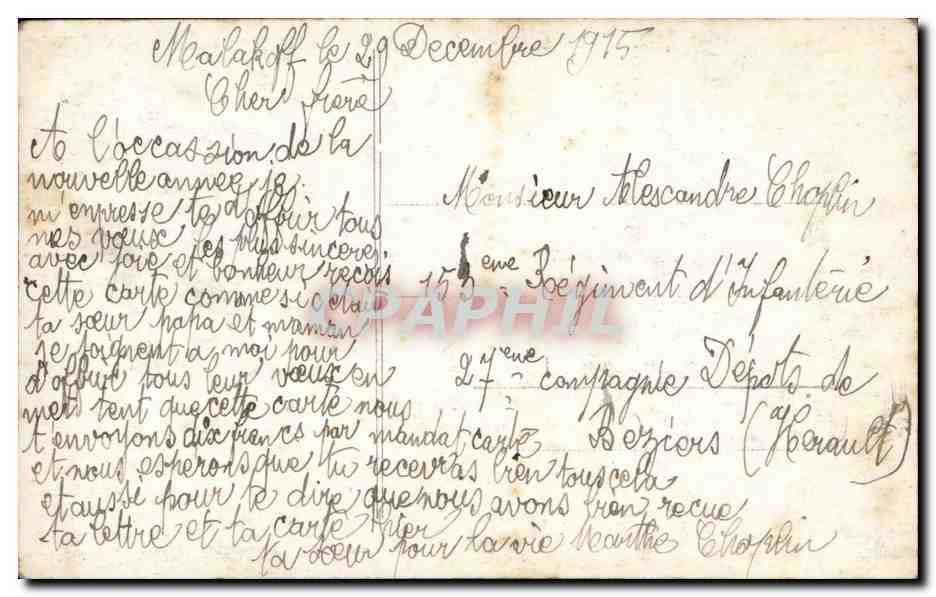 Malakoff le 29 Decembre 1915
Cher frère
A l'occassion de la
nouvelle année je
m'enpresse te d'offrir tous
mes vœux les plus sincères
avec joie et bonheur reçois
cette carte comme si c'etait
ta sœur papa et maman
se joignent a moi pour
t'offrir tous leur vœux en
mem tent que cette carte nous
t envoyons dix francs par mandat carte
et nous esperons que tu recevras bien tous cela
et aussi pour te dire que nous avons bien recue
ta lettre et ta carte hier
ta sœur pour la vie Marthe Choplin
Monsieur Alescandre Choplin
153 eme Régiment d'Infanterie
27 eme compagnie Dépots de
Beziers (Herault)
CPAPHIL